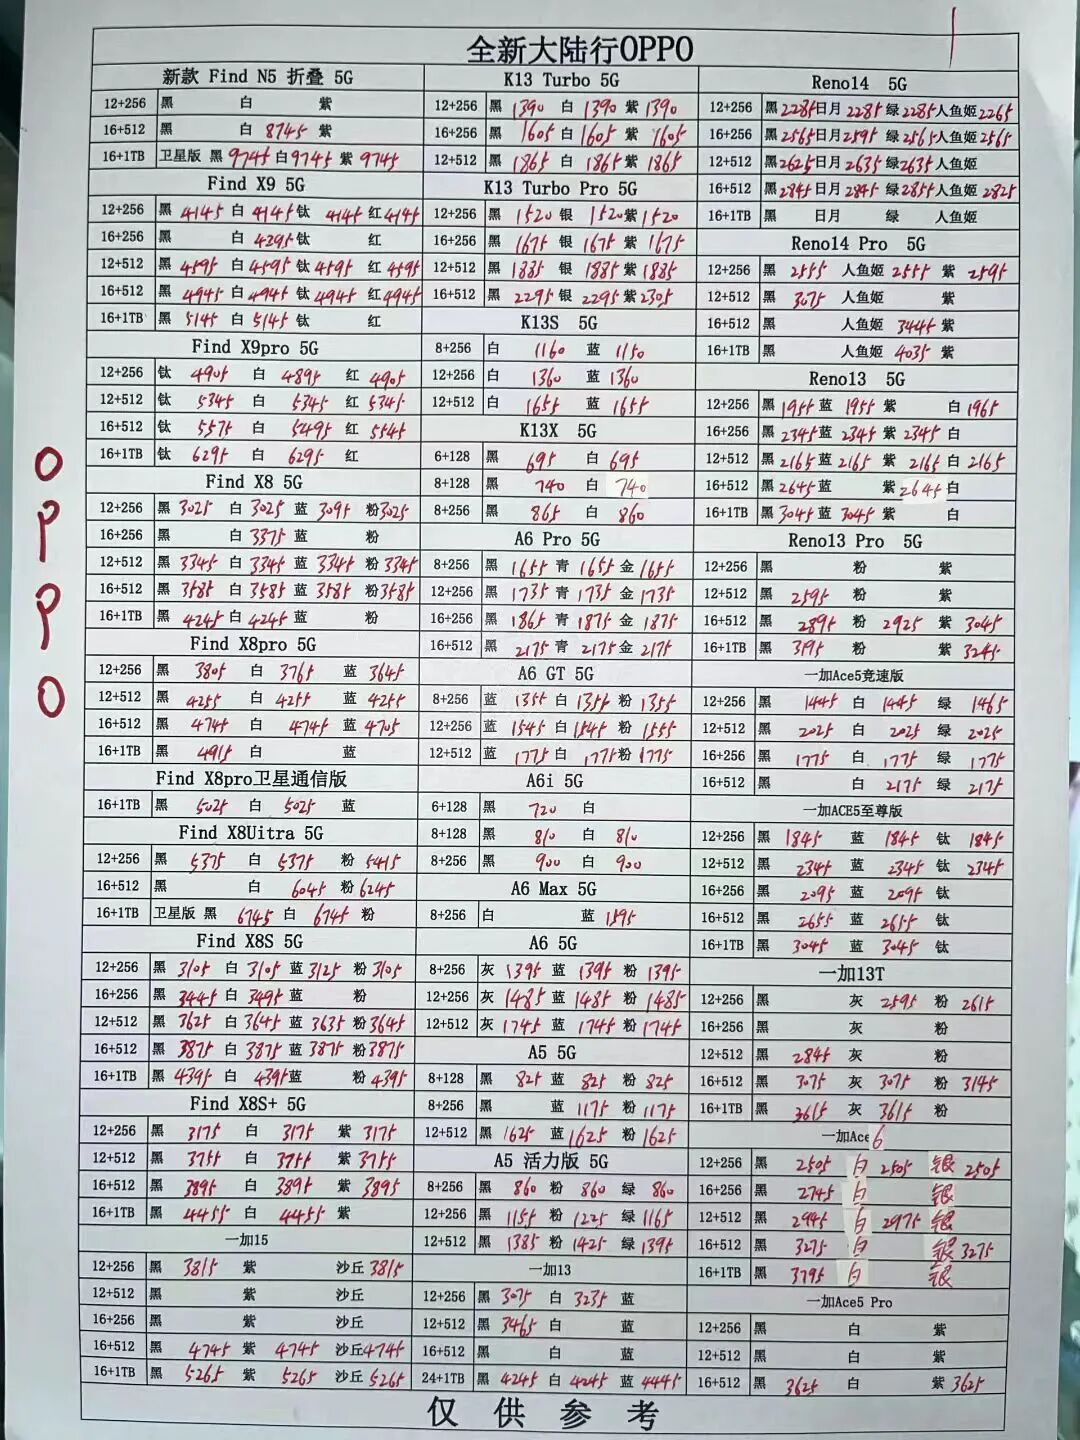 全新大陆行OPPO
O
P
P
O
新款 Find N5 折叠 5G
12+256 黑 白 紫
16+512 黑 白 8745 紫
16+1TB 卫星版 黑 9745 白 9745 紫 9745
Find X9 5G
12+256 黑 4145 白 4145 钛 4145 红 4145
16+256 黑 白 4295 钛 红
12+512 黑 4595 白 4595 钛 4595 红 4595
16+512 黑 4945 白 4945 钛 4945 红 4945
16+1TB 黑 5145 白 5145 钛 红
Find X9pro 5G
12+256 钛 4905 白 4895 红 4905
12+512 钛 5345 白 5345 红 5345
16+512 钛 5575 白 5495 红 5545
16+1TB 钛 6295 白 6295 红
Find X8 5G
12+256 黑 3025 白 3025 蓝 3095 粉 3025
16+256 黑 白 3375 蓝 粉
12+512 黑 3345 白 3345 蓝 3345 粉 3345
16+512 黑 3585 白 3585 蓝 3585 粉 3585
16+1TB 黑 4245 白 4245 蓝 粉
Find X8pro 5G
12+256 黑 3805 白 3765 蓝 3645
12+512 黑 4255 白 4255 蓝 4255
16+512 黑 4745 白 4745 蓝 4705
16+1TB 黑 4915 白 蓝
Find X8pro卫星通信版
16+1TB 黑 5025 白 5025 蓝
Find X8Uitra 5G
12+256 黑 5375 白 5375 粉 5415
16+512 黑 白 6045 粉 6245
16+1TB 卫星版 黑 6745 白 6745 粉
Find X8S 5G
12+256 黑 3105 白 3105 蓝 3125 粉 3105
16+256 黑 3445 白 3495 蓝 粉
12+512 黑 3625 白 3645 蓝 3635 粉 3645
16+512 黑 3875 白 3875 蓝 3875 粉 3875
16+1TB 黑 4395 白 4395 蓝 粉 4395
Find X8S+ 5G
12+256 黑 3175 白 3175 紫 3175
12+512 黑 3755 白 3755 紫 3755
16+512 黑 3895 白 3895 紫 3895
16+1TB 黑 4455 白 4455 紫
一加15
12+256 黑 3815 紫 沙丘 3815
12+512 黑 紫 沙丘
16+256 黑 紫 沙丘
16+512 黑 4745 紫 4745 沙丘 4745
16+1TB 黑 5265 紫 5265 沙丘 5265
K13 Turbo 5G
12+256 黑 1390 白 1390 紫 1390
16+256 黑 1605 白 1605 紫 1605
12+512 黑 1865 白 1865 紫 1865
K13 Turbo Pro 5G
12+256 黑 1520 银 1520 紫 1520
16+256 黑 1675 银 1675 紫 1675
12+512 黑 1885 银 1885 紫 1885
16+512 黑 2295 银 2295 紫 2305
K13S 5G
8+256 白 1160 蓝 1150
12+256 白 1360 蓝 1360
12+512 白 1655 蓝 1655
K13X 5G
6+128 黑 695 白 695
8+128 黑 740 白 740
8+256 黑 865 白 860
A6 Pro 5G
8+256 黑 1655 青 1655 金 1655
12+256 黑 1735 青 1735 金 1735
16+256 黑 1865 青 1875 金 1875
16+512 黑 2175 青 2175 金 2175
A6 GT 5G
8+256 蓝 1355 白 1355 粉 1355
12+256 蓝 1545 白 1545 粉 1555
12+512 蓝 1775 白 1775 粉 1775
A6i 5G
6+128 黑 720 白
8+128 黑 810 白 810
8+256 黑 900 白 900
A6 Max 5G
8+256 白 蓝 1595
A6 5G
8+256 灰 1395 蓝 1395 粉 1395
12+256 灰 1485 蓝 1485 粉 1485
12+512 灰 1745 蓝 1745 粉 1745
A5 5G
8+128 黑 825 蓝 825 粉 825
8+256 黑 蓝 1175 粉 1175
12+512 黑 1625 蓝 1625 粉 1625
A5 活力版 5G
8+256 黑 860 粉 860 绿 860
12+256 黑 1155 粉 1225 绿 1165
12+512 黑 1385 粉 1425 绿 1395
一加13
12+256 黑 3075 白 3235 蓝
12+512 黑 3465 白 蓝
16+512 黑 白 蓝
24+1TB 黑 4245 白 4245 蓝 4445
Reno14 5G
12+256 黑 2285 日月 2285 绿 2285 人鱼姬 2265
16+256 黑 2565 日月 2595 绿 2565 人鱼姬 2565
12+512 黑 2625 日月 2635 绿 2635 人鱼姬
16+512 黑 2845 日月 2845 绿 2855 人鱼姬 2825
16+1TB 黑 日月 绿 人鱼姬
Reno14 Pro 5G
12+256 黑 2555 人鱼姬 2555 紫 2595
12+512 黑 3075 人鱼姬 紫
16+512 黑 人鱼姬 3445 紫
16+1TB 黑 人鱼姬 4035 紫
Reno13 5G
12+256 黑 1955 蓝 1955 紫 白 1965
16+256 黑 2345 蓝 2345 紫 2345 白
12+512 黑 2165 蓝 2165 紫 2165 白 2165
16+512 黑 2645 蓝 紫 2645 白
16+1TB 黑 3045 蓝 3045 紫 白
Reno13 Pro 5G
12+256 黑 粉 紫
12+512 黑 2595 粉 紫
16+512 黑 2895 粉 2925 紫 3045
16+1TB 黑 3195 粉 紫 3245
一加Ace5竞速版
12+256 黑 1445 白 1445 绿 1465
12+512 黑 2025 白 2025 绿 2025
16+256 黑 1775 白 1775 绿 1775
16+512 黑 白 2175 绿 2175
一加ACE5至尊版
12+256 黑 1845 蓝 1845 钛 1845
12+512 黑 2345 蓝 2345 钛 2345
16+256 黑 2095 蓝 2095 钛
16+512 黑 2655 蓝 2655 钛
16+1TB 黑 3045 蓝 3045 钛
一加13T
12+256 黑 灰 2595 粉 2615
16+256 黑 灰 粉
12+512 黑 2845 灰 粉
16+512 黑 3075 灰 3075 粉 3145
16+1TB 黑 3615 灰 3615 粉
一加Ace6
12+256 黑 2505 白 2505 银 2505
16+256 黑 2745 白 银
12+512 黑 2945 白 2975 银
16+512 黑 3275 白 银 3275
16+1TB 黑 3795 白 银
一加Ace5 Pro
12+256 黑 白 紫
12+512 黑 白 紫
16+512 黑 3625 白 紫 3625
仅供参考